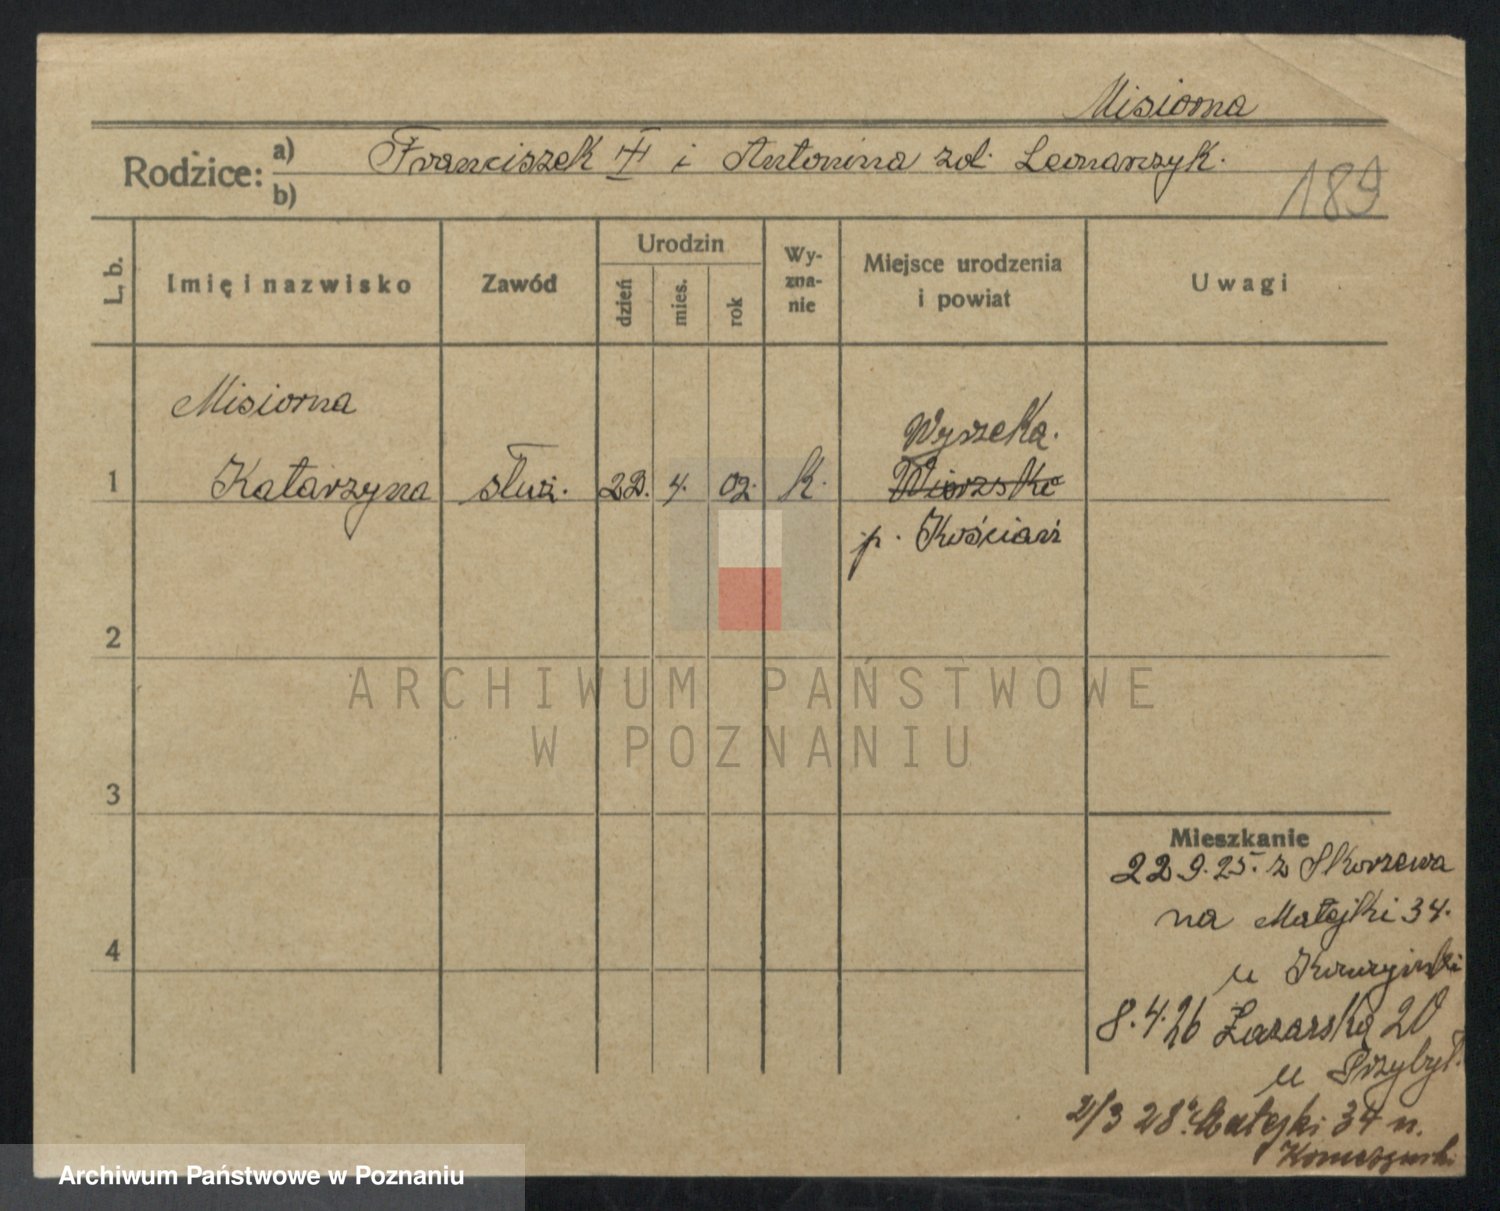 Misiorna
Rodzice: a) Franciszek i Antonina zd. Leonarczyk.
b)
189
L. b.
Imię i nazwisko
Zawód
Urodzin
dzień
mies.
rok
Wy-
zna-
nie
Miejsce urodzenia
i powiat
Uwagi
Misiorna
Wyszeka.
1 Katarzyna służ. 22. 4. 02. k.
p. Kościan
2
ARCHIWUM PAŃSTWOWE
W POZNANIU
3
Mieszkanie
22.9.25. z Skorzewa
na Matejki 34.
u
4
8.4.26 Łazarska 20
u Przybył.
2/3 28. Matejki 34 u.
Archiwum Państwowe w Poznaniu